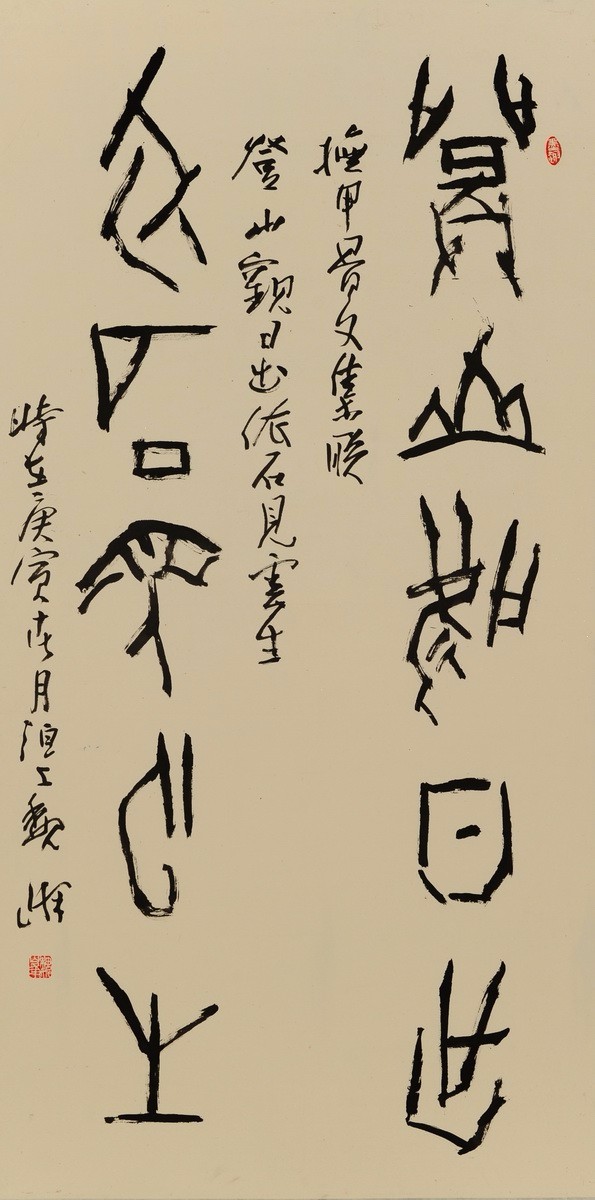 登山觀日出
撫甲骨文集聯
登山觀日出依石見雲生
依石見雲生
時在庚寅春月洹上魏